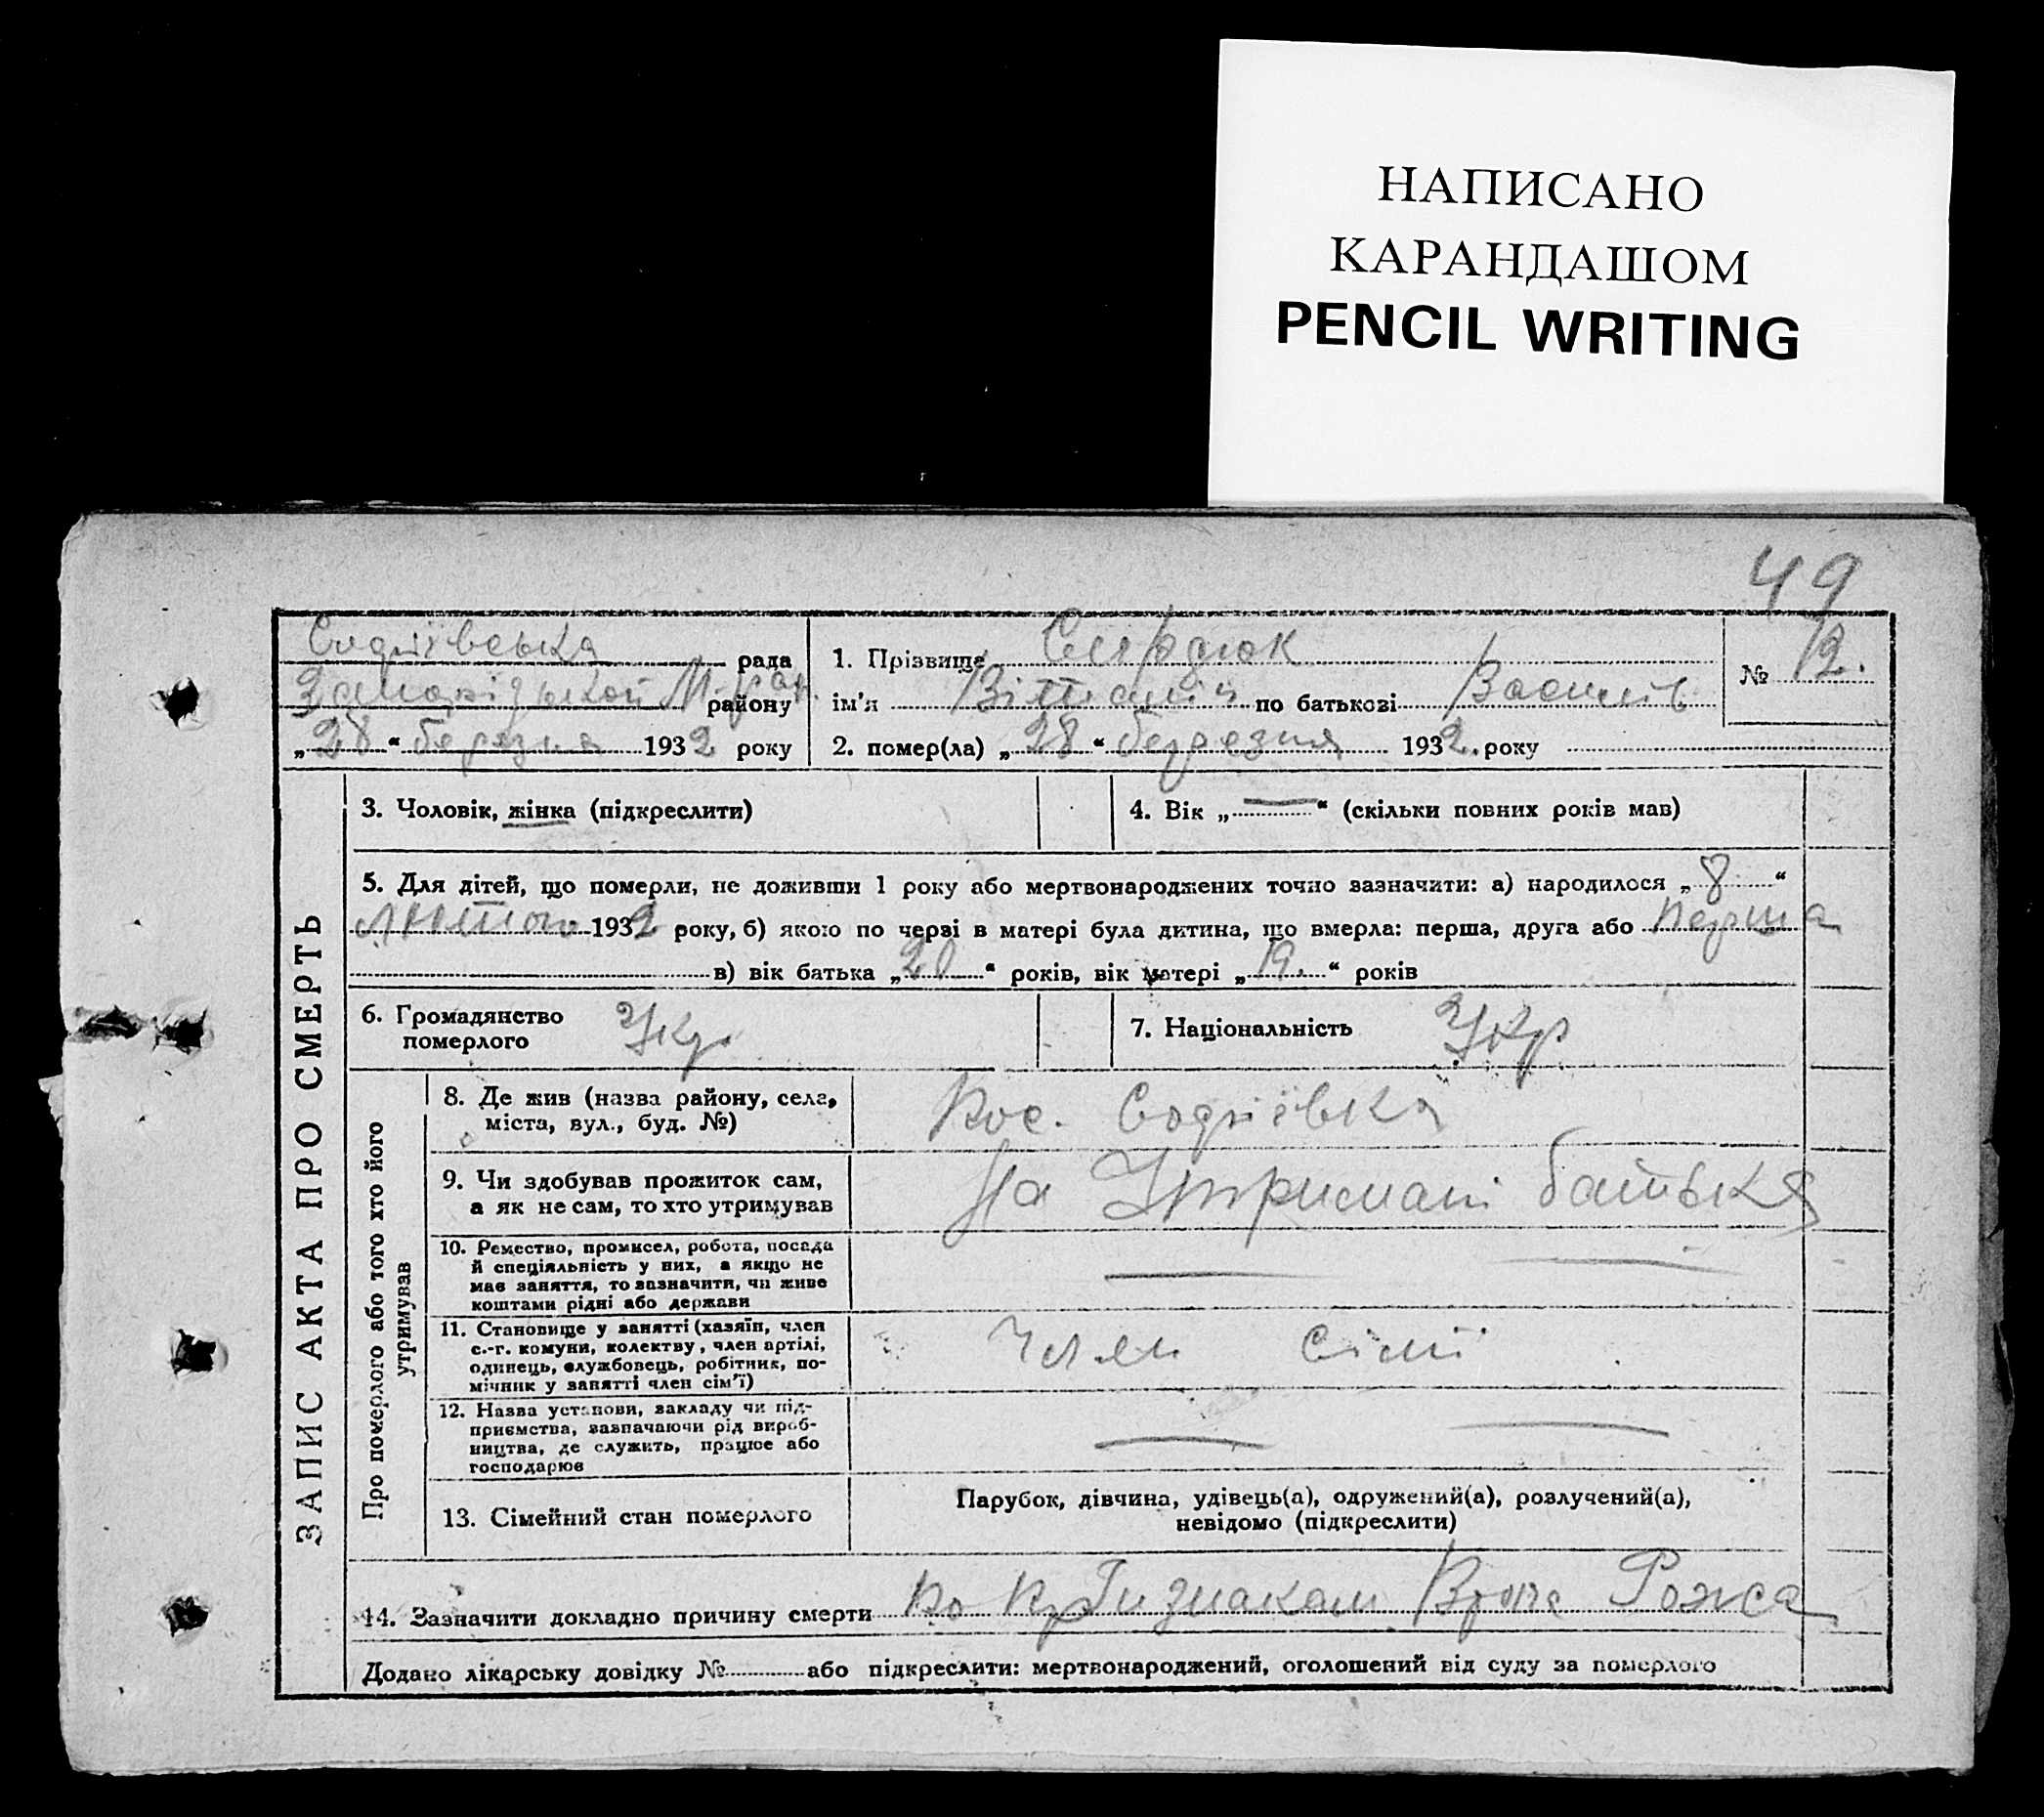 НАПИСАНО
КАРАНДАШОМ
PENCIL WRITING
49
рада
району
„28“ березня 1932 року
1. Прізвище Сердюк
№ 12.
ім'я по батькові Василів
2. помер(ла) „28“ березня 1932. року
ЗАПИС АКТА ПРО СМЕРТЬ
3. Чоловік, жінка (підкреслити)
4. Вік „—“ (скільки повних років мав)
5. Для дітей, що померли, не доживши 1 року або мертвонароджених точно зазначити: а) народилося „8“
лютого 1932 року, б) якою по черзі в матері була дитина, що вмерла: перша, друга або перша
в) вік батька „20“ років, вік матері „19.“ років
6. Громадянство померлого Укр.
7. Національність Укр
Про померлого або того хто його утримував
8. Де жив (назва району, села, міста, вул., буд. №) Пос.
9. Чи здобував прожиток сам, а як не сам, то хто утримував На Утримані батька
10. Ремество, промисел, робота, посада й спеціяльність у них, а якщо не має заняття, то зазначити, чи живе коштами рідні або держави —
11. Становище у занятті (хазяїн, член с.-г. комуни, колектву, член артілі, одинець, службовець, робітник, помічник у занятті член сім'ї) Член сімї
12. Назва установи, закладу чи підприємства, зазначаючи рід виробництва, де служить, працює або господарює —
13. Сімейний стан померлого
Парубок, дівчина, удівець(а), одружений(а), розлучений(а),
невідомо (підкреслити)
14. Зазначити докладно причину смерти По Рожа
Додано лікарську довідку № або підкреслити: мертвонароджений, оголошений від суду за померлого